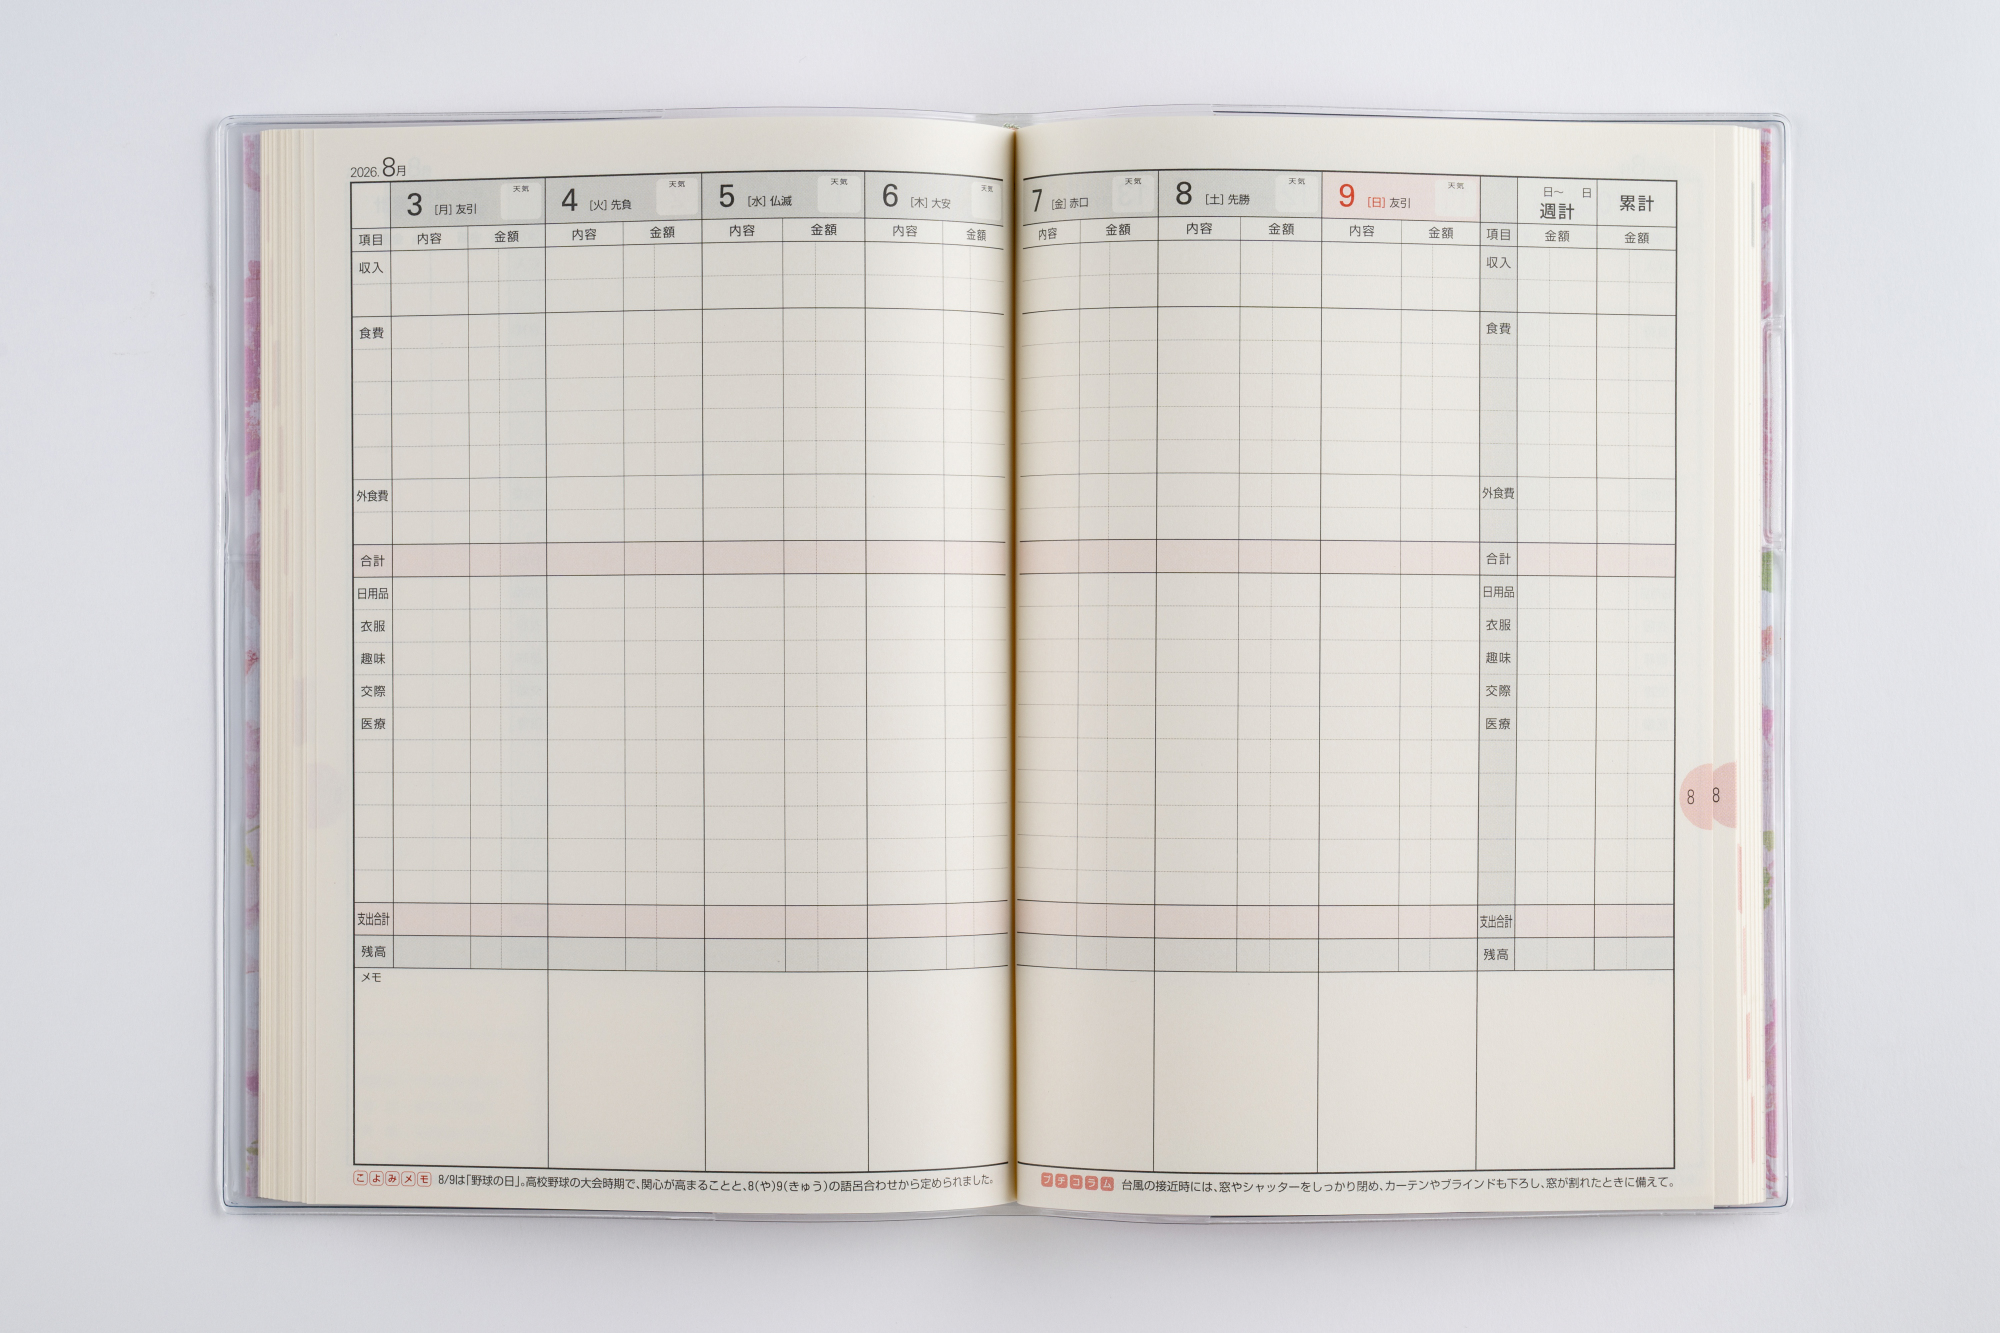 2026. 8月
3 [月] 友引 天気 4 [火] 先負 天気 5 [水] 仏滅 天気 6 [木] 大安 天気
項目 内容 金額 内容 金額 内容 金額 内容 金額
収入
食費
外食費
合計
日用品
衣服
趣味
交際
医療
支出合計
残高
メモ
こよみメモ 8/9は「野球の日」。高校野球の大会時期で、関心が高まることと、8(や)9(きゅう)の語呂合わせから定められました。
7 [金] 赤口 天気 8 [土] 先勝 天気 9 [日] 友引 天気 日～ 日 週計 累計
内容 金額 内容 金額 内容 金額 項目 金額 金額
収入
食費
外食費
合計
日用品
衣服
趣味
交際
医療
8 8
支出合計
残高
プチコラム 台風の接近時には、窓やシャッターをしっかり閉め、カーテンやブラインドも下ろし、窓が割れたときに備えて。